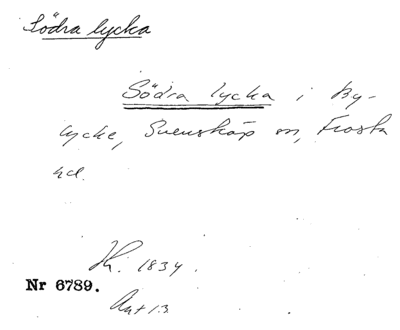 Södra lycka
Södra lycka i By-
lycke, Svenskäp sn, Frosta
hd.
Ht. 1834.
Nr 6789.
Art 13